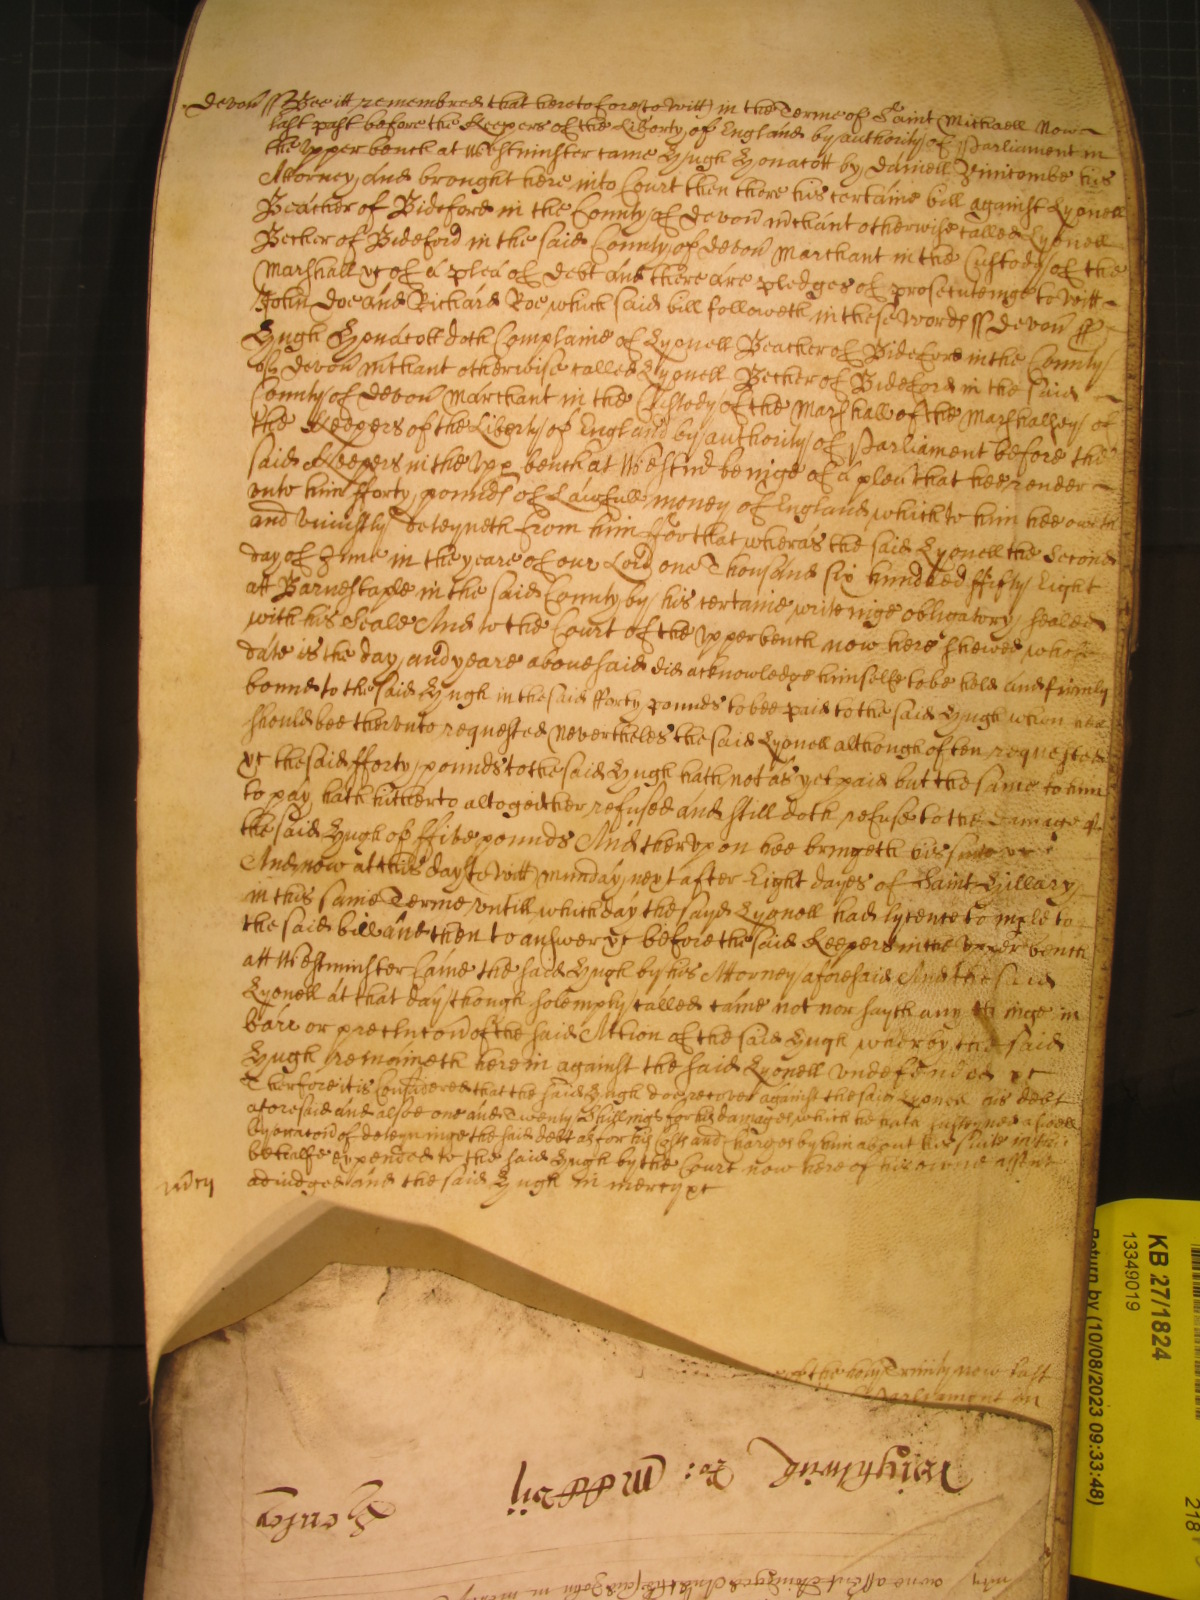 Devon ss Bee itt remembred that heretofore (to witt) in the Terme of Saint Michaell Now
last past before the Keepers of the Liberty of England by authority of Parliament in
the vpper bench at Westminster came Hugh Honacott by Daniell his
Attorney and brought here into Court then there his certaine bill against Lyonell
Beacher of Bideford in the County of Devon mchant otherwise called Lyonell
Becher of Bideford in the said County of Devon Marchant in the Custody of the
Marshall &c of a plea of debt and there are pledges of prosecuteinge to witt
John Doe and Richard Roe which said bill followeth in these words ss Devon ss
Hugh Honacott doth Complaine of Lyonell Beacher of Bideford in the County
of Devon mchant otherwise called Lyonell Becher of Bideford in the said
County of Devon Marchant in the Custody of the Marshall of the Marshallsey of
the Keepers of the Liberty of England by authority of Parliament before the
said Keepers in the vpp bench at Westmr beinge of a plea that hee render
vnto him fforty pounds of Lawfull money of England which to him hee oweth
and vniustly deteyneth from him ffor that wheras the said Lyonell the Second
day of June in the yeare of our Lord one Thousand six hundred ffifty Eight
att Barnestaple in the said County by his certaine writeinge obligatory sealed
with his Seale And to the Court of the vpper bench now here shewed whose
date is the day and yeare abouesaid did acknowledge himselfe to be held and firmly
bound to the said Hugh in the said fforty pounds to bee paid to the said Hugh when hee
should bee therevnto requested Neverthelesse the said Lyonell although often requested
&c the said fforty pounds to the said Hugh hath not as yet paid but the same to him
to pay hath hitherto altogeither refused and still doth refuse to the damage of
the said Hugh of ffive pounds And thervpon hee bringeth his suite &c
And now at this day to witt Munday next after Eight dayes of Saint Hillary
in this same Terme vntill which day the sayd Lyonell had lycence to imple to
the said bill and then to answer &c before the said Keepers in the vpper bench
att Westminster Came the said Hugh by his Attorney aforesaid And the said
Lyonell at that day though solemply called came not nor sayth any thinge in
barr or preclucon of the said Action of the said Hugh wherby the said
Hugh remaineth herein against the said Lyonell vndefended &c
Therfore it is Considered that the said Hugh doe recover against the said Lyonell his debt
aforesaid and alsoe one and Twenty Shillings for his damages which he hath susteyned aswell
by occacon of deteyninge the said debt as for his costs and charges by him about his suite in this
behalfe expended to the said Hugh by the Court now here of his owne assent
mercy
adiudged and the said Lyonell in mercy &c
of the holy Trinity now last
Parliament in
KB 27/1824
13349019
Return by (10/08/2023 09:33:48)
218